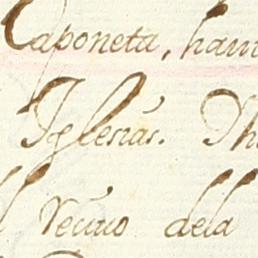 Caponeta, ham
Iglesias. Th
Vecino dela